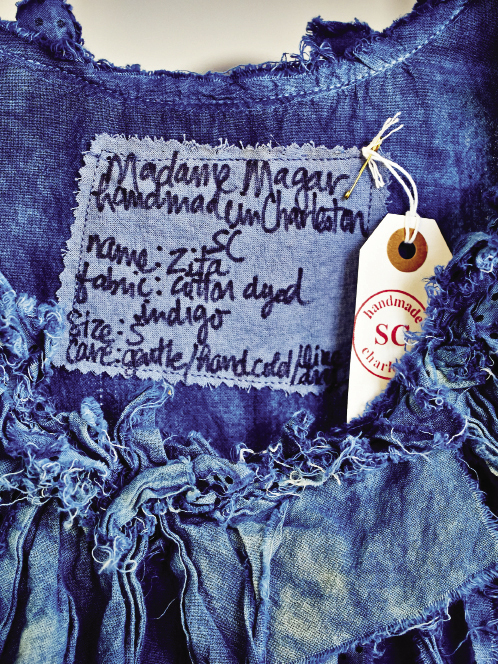 Madame Magar
handmade in Charleston
SC
name: Zita
fabric: cotton dyed
indigo
Size: S
Care: gentle/hand cold/line
dry
handmade
SC